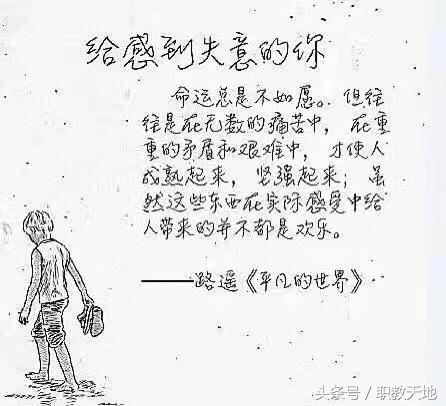 给感到失意的你
命运总是不如愿。但往
往是在无数的痛苦中，在重
重的矛盾和艰难中，才使人
成熟起来，坚强起来；虽
然这些东西在实际感受中给
人带来的并不都是欢乐。
——路遥《平凡的世界》
头条号/职教天地